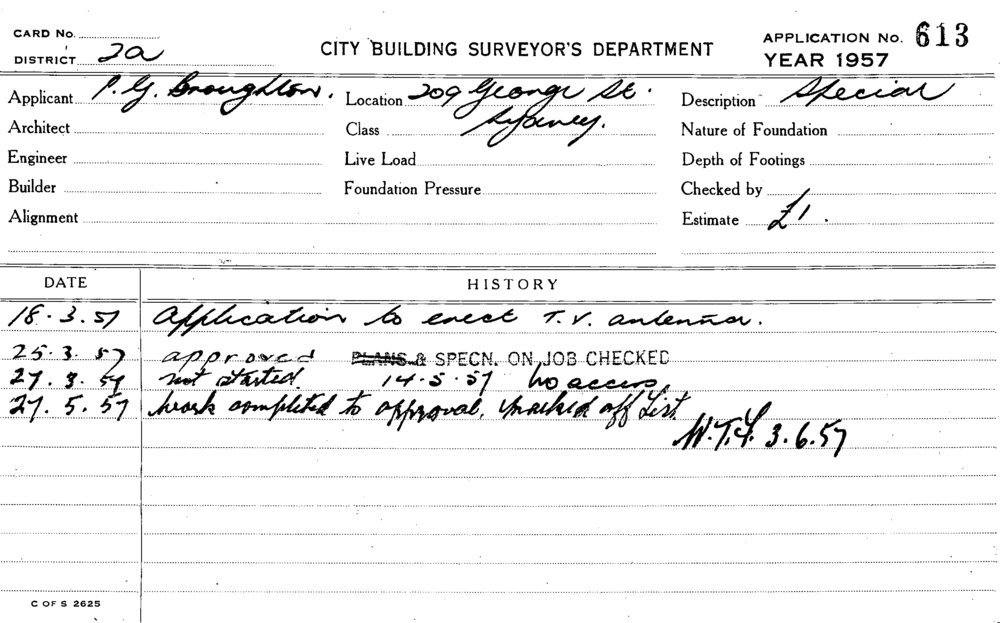 CARD No.
DISTRICT 2a
CITY BUILDING SURVEYOR'S DEPARTMENT
APPLICATION No. 613
YEAR 1957
Applicant P. G. Broughton. Location 209 George St. Description Special
Architect Class Sydney. Nature of Foundation
Engineer Live Load Depth of Footings
Builder Foundation Pressure Checked by
Alignment Estimate £1.
DATE HISTORY
18.3.57 Application to erect T.V. antenna.
25.3.57 approved PLANS & SPECN. ON JOB CHECKED
27.3.57 not started. 14.5.57 No access,
27.5.57 Work completed to approval, marked off List
W.T.F. 3.6.57
C OF S 2625